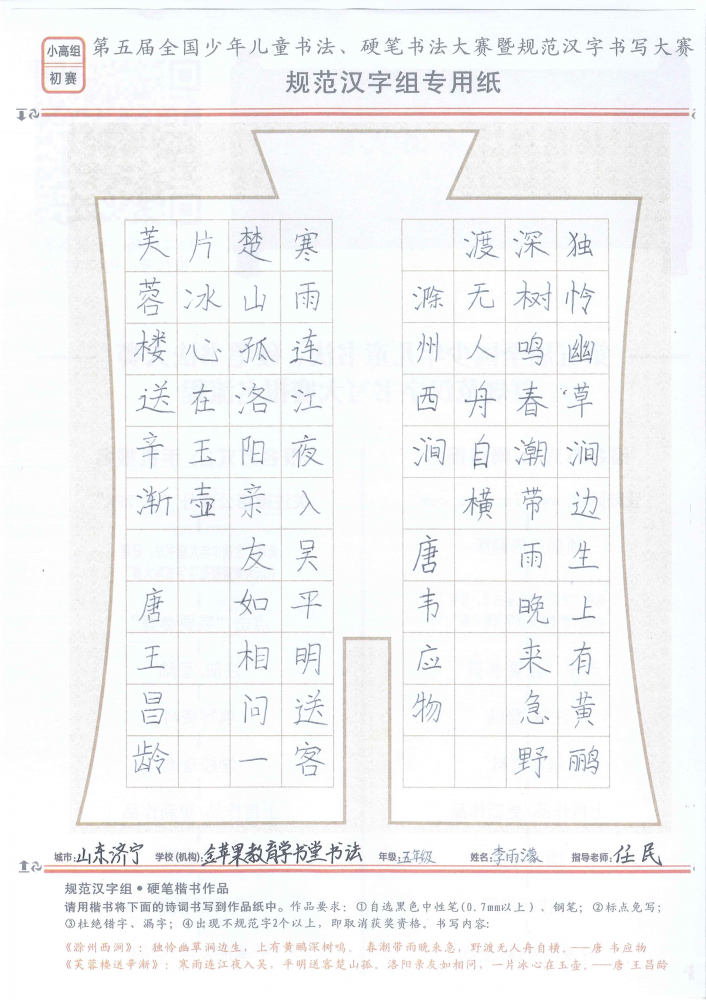 小高组
初赛
第五届全国少年儿童书法、硬笔书法大赛暨规范汉字书写大赛
规范汉字组专用纸
独怜幽草涧边生上有黄鹂
深树鸣春潮带雨晚来急野
渡无人舟自横
滁州西涧 唐韦应物
寒雨连江夜入吴平明送客
楚山孤洛阳亲友如相问一
片冰心在玉壶
芙蓉楼送辛渐 唐王昌龄
城市:山东济宁 学校(机构):金苹果教育学书堂书法 年级:五年级 姓名:李雨濛 指导老师:任民
规范汉字组•硬笔楷书作品
请用楷书将下面的诗词书写到作品纸中。作品要求:①自选黑色中性笔(0.7mm以上)、钢笔;②标点免写;
③杜绝错字、漏字;④出现不规范字2个以上,即取消获奖资格。书写内容:
《滁州西涧》:独怜幽草涧边生,上有黄鹂深树鸣。 春潮带雨晚来急,野渡无人舟自横。——唐 韦应物
《芙蓉楼送辛渐》:寒雨连江夜入吴,平明送客楚山孤。洛阳亲友如相问,一片冰心在玉壶。——唐 王昌龄